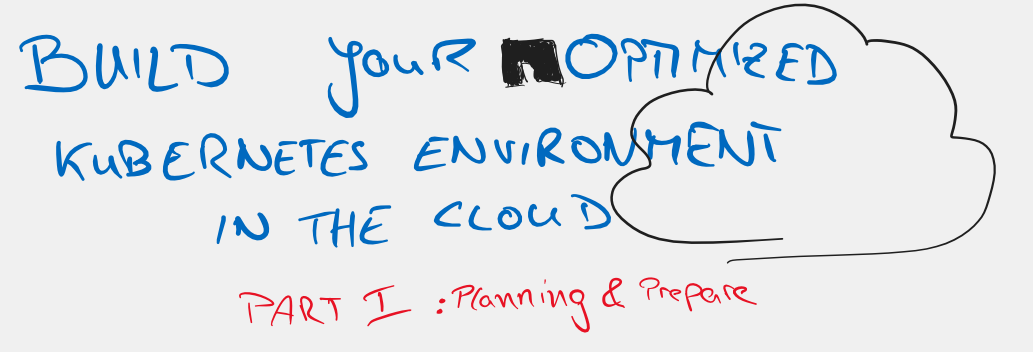 BUILD YOUR OPTIMIZED
KUBERNETES ENVIRONMENT
IN THE CLOUD
PART I : Planning & Prepare